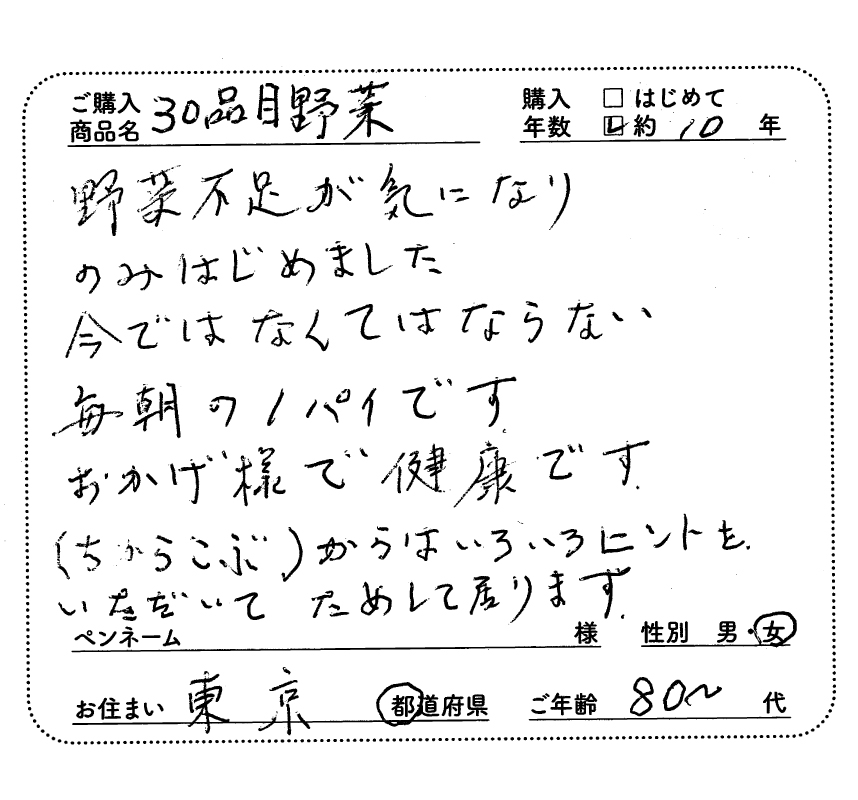 ご購入商品名 30品目野菜
購入年数 □ はじめて
☑ 約 10 年
野菜不足が気になり
のみはじめました
今ではなくてはならない
毎朝の1パイです
おかげ様で健康です
(ちからこぶ)からはいろいろヒントを
いただいて ためして居ります
ペンネーム 様 性別 男・女
お住まい 東京 都道府県 ご年齢 80〜 代